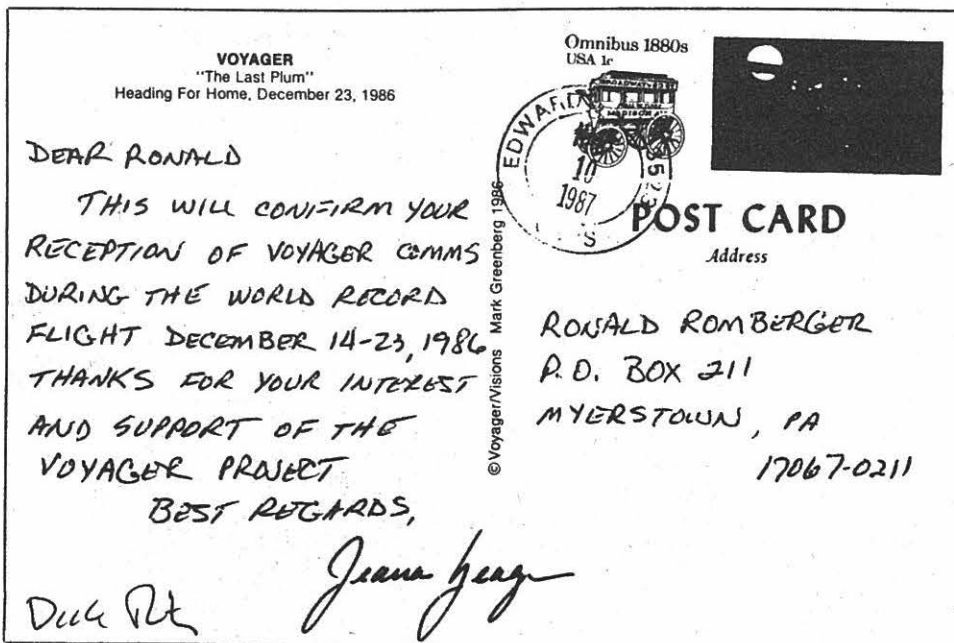 VOYAGER
"The Last Plum"
Heading For Home, December 23, 1986
DEAR RONALD
THIS WILL CONFIRM YOUR
RECEPTION OF VOYAGER COMMS
DURING THE WORLD RECORD
FLIGHT DECEMBER 14-23, 1986
THANKS FOR YOUR INTEREST
AND SUPPORT OF THE
VOYAGER PROJECT
BEST REGARDS,
Jeana Yeager
© Voyager/Visions Mark Greenberg 1986
Omnibus 1880s
USA 1c
EDWARD
10
1987
POST CARD
Address
RONALD ROMBERGER
P.O. BOX 211
MYERSTOWN, PA
17067-0211